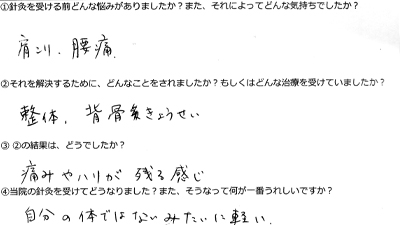 ①針灸を受ける前どんな悩みがありましたか？また、それによってどんな気持ちでしたか？
肩こり、腰痛、
②それを解決するために、どんなことをされましたか？もしくはどんな治療を受けていましたか？
整体、背骨きょうせい
③ ②の結果は、どうでしたか？
痛みやハリが残る感じ
④当院の針灸を受けてどうなりました？また、そうなって何が一番うれしいですか？
自分の体ではないみたいに軽い、